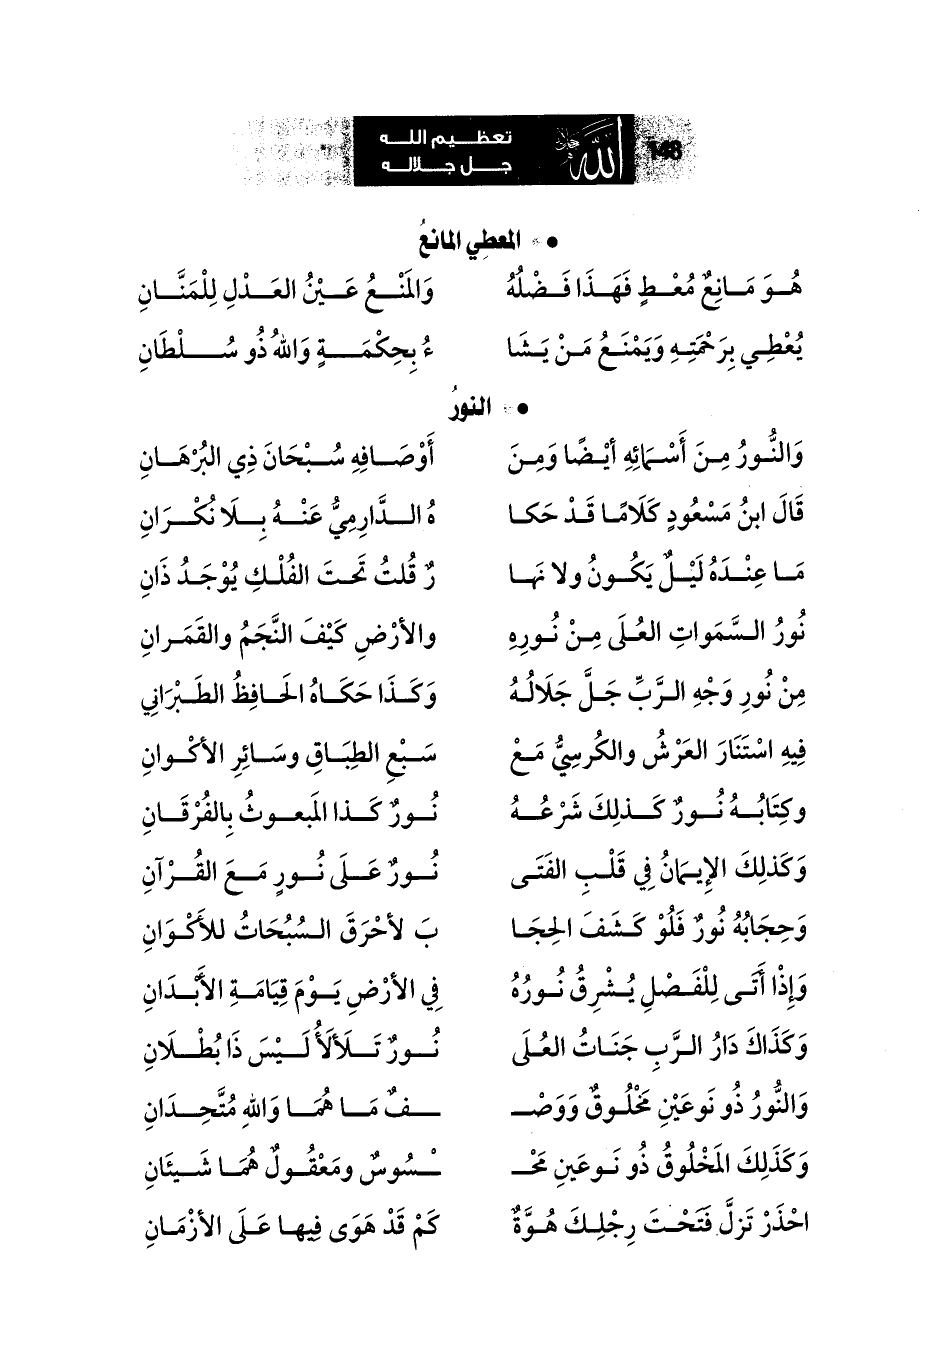 148 الله جل جلاله تعظيم الله
جل جلاله
• المعطِي المانعُ
هُوَ مَانِعٌ مُعْطٍ فَهَذَا فَضْلُهُ وَالمَنْعُ عَيْنُ العَدْلِ لِلْمَنَّانِ
يُعْطِي بِرَحْمَتِهِ وَيَمْنَعُ مَنْ يَشَا ءُ بِحِكْمَةٍ وَاللهُ ذُو سُلْطَانِ
• النورُ
وَالنُّورُ مِنَ أَسْمَائِهِ أيْضًا وَمِنَ أَوْصَافِهِ سُبْحَانَ ذِي البُرْهَانِ
قَالَ ابنُ مَسْعُودٍ كَلَامًا قَدْ حَكَا هُ الدَّارِمِيُّ عَنْهُ بِلَا نُكْرَانِ
مَا عِنْدَهُ لَيْلٌ يَكُونُ ولا نَهَا رٌ قُلتُ تَحتَ الفُلْكِ يُوْجَدُ ذَانِ
نُورُ السَّمَواتِ العُلَى مِنْ نُورِهِ والأرْضِ كَيْفَ النَّجَمُ والقَمَرانِ
مِنْ نُورِ وَجْهِ الرَّبِّ جَلَّ جَلَالُهُ وَكَذَا حَكَاهُ الحَافِظُ الطَبْرَانِي
فِيهِ اسْتَنَارَ العَرْشُ والكُرسِيُّ مَعْ سَبْعِ الطِبَاقِ وسَائِرِ الأكْوانِ
وكِتَابُهُ نُورٌ كَذلِكَ شَرْعُهُ نُورٌ كَذا المَبعوثُ بِالفُرْقَانِ
وَكَذلِكَ الإيمَانُ فِي قَلْبِ الفَتَى نُورٌ عَلَى نُورٍ مَعَ القُرْآنِ
وَحِجَابُهُ نُورٌ فَلَوْ كَشَفَ الحِجَا بَ لأحْرَقَ السُبُحَاتُ للأَكْوَانِ
وَإِذْا أَتَى لِلْفَصْلِ يُشْرِقُ نُورُهُ فِي الأرْضِ يَوْمَ قِيَامَةِ الأبْدَانِ
وَكَذَاكَ دَارُ الرَّبِ جَنَاتُ العُلَى نُورٌ تَلَألَأُ لَيْسَ ذَا بُطْلَانِ
وَالنُّورُ ذُو نَوعَيْنِ مَخْلُوقٌ وَوَصْـ ـفٌ مَا هُمَا وَاللهِ مُتَّحِدَانِ
وَكَذَلِكَ المَخْلُوقُ ذُو نَوعَينِ مَحْـ ـسُوسٌ ومَعْقُولٌ هُمَا شَيئَانِ
احْذَرْ تَزِلَّ فَتَحْتَ رِجْلِكَ هُوَّةٌ كَمْ قَدْ هَوَى فِيها عَلَى الأزْمَانِ